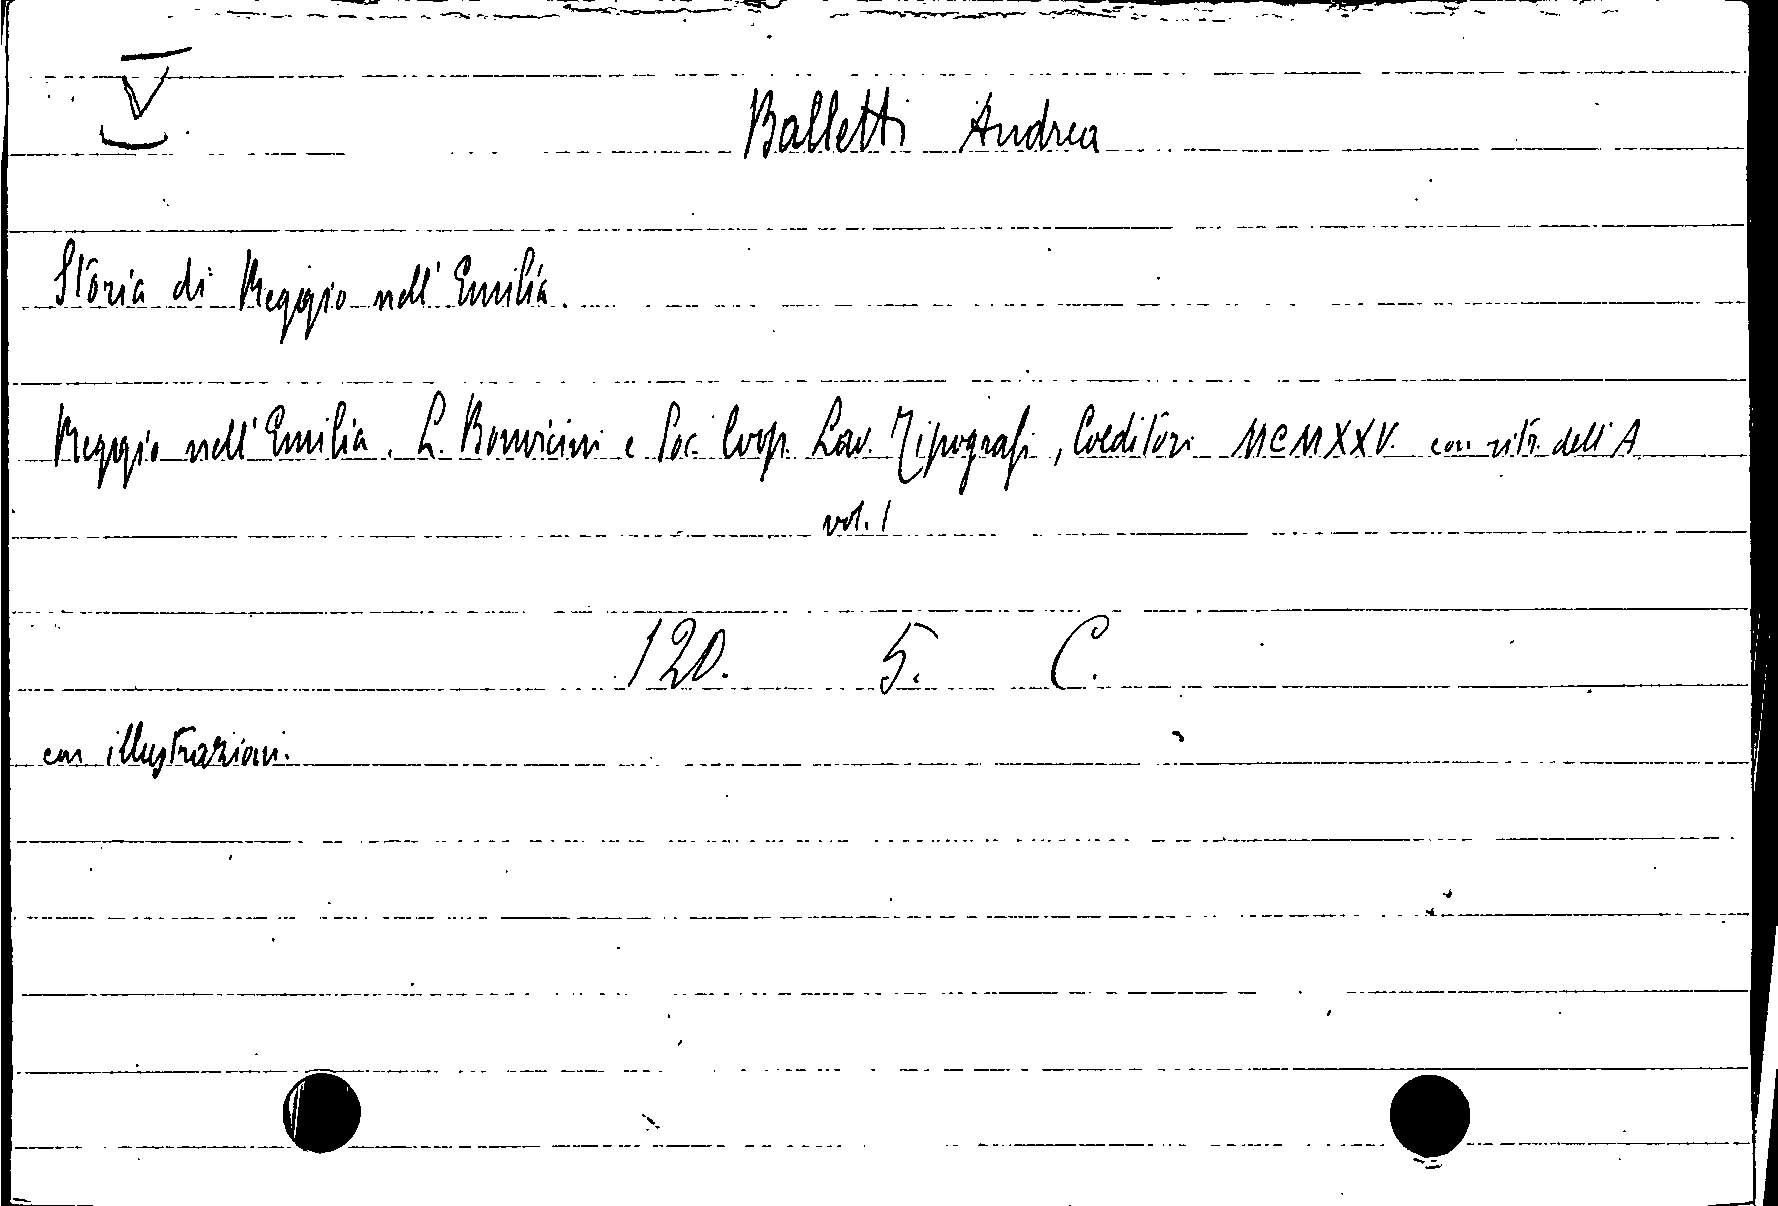 V
Balletti Andrea
Storia di Reggio nell'Emilia.
Reggio nell'Emilia. L. Bonvicini e Soc. Coop. Lav. Tipografi, Coeditori MCMXXV. con ritr. dell'A
vol. 1
120. 5. C.
con illustrazioni.